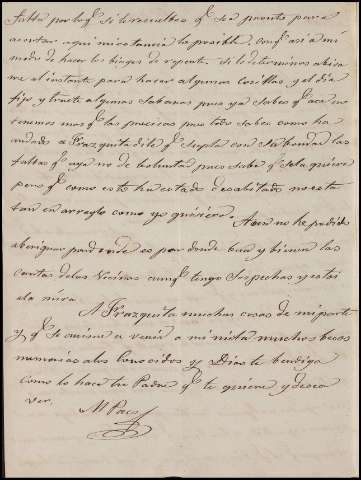 falta por lo q.e si lo resuelbes q.e sea pronto para
acortar aqui mi estancia lo posible, con q.e asi a mi
modo de hacer los biages de repente. Si lo determinas abisa
me al instante para hacer algunas cosillas y el dia
fijo y traete algunas sabanas pues ya sabes q.e aca no
tenemos mas q.e las precisas pues todo sabes como ha
andado a Frazquita dila q.e supla con su bondad las
faltas q.e aya no de boluntad pues sabe q.e se la quiere
pero q.e como esto ha estado desabitado no esta
tan en arreglo como yo quisiera. Aun no he podido
aberiguar por donde es por donde ban y bienen las
cartas de los vecinos aunq.e tengo sospechas y estoi
a la mira.
A Frazquita muchas cosas de mi parte
y q.e se anime a venir a mi nieta muchos besos
memorias a los conocidos y Dios te bendiga
como lo hace tu Padre q.e te quiere y desea
ver.
M Paco